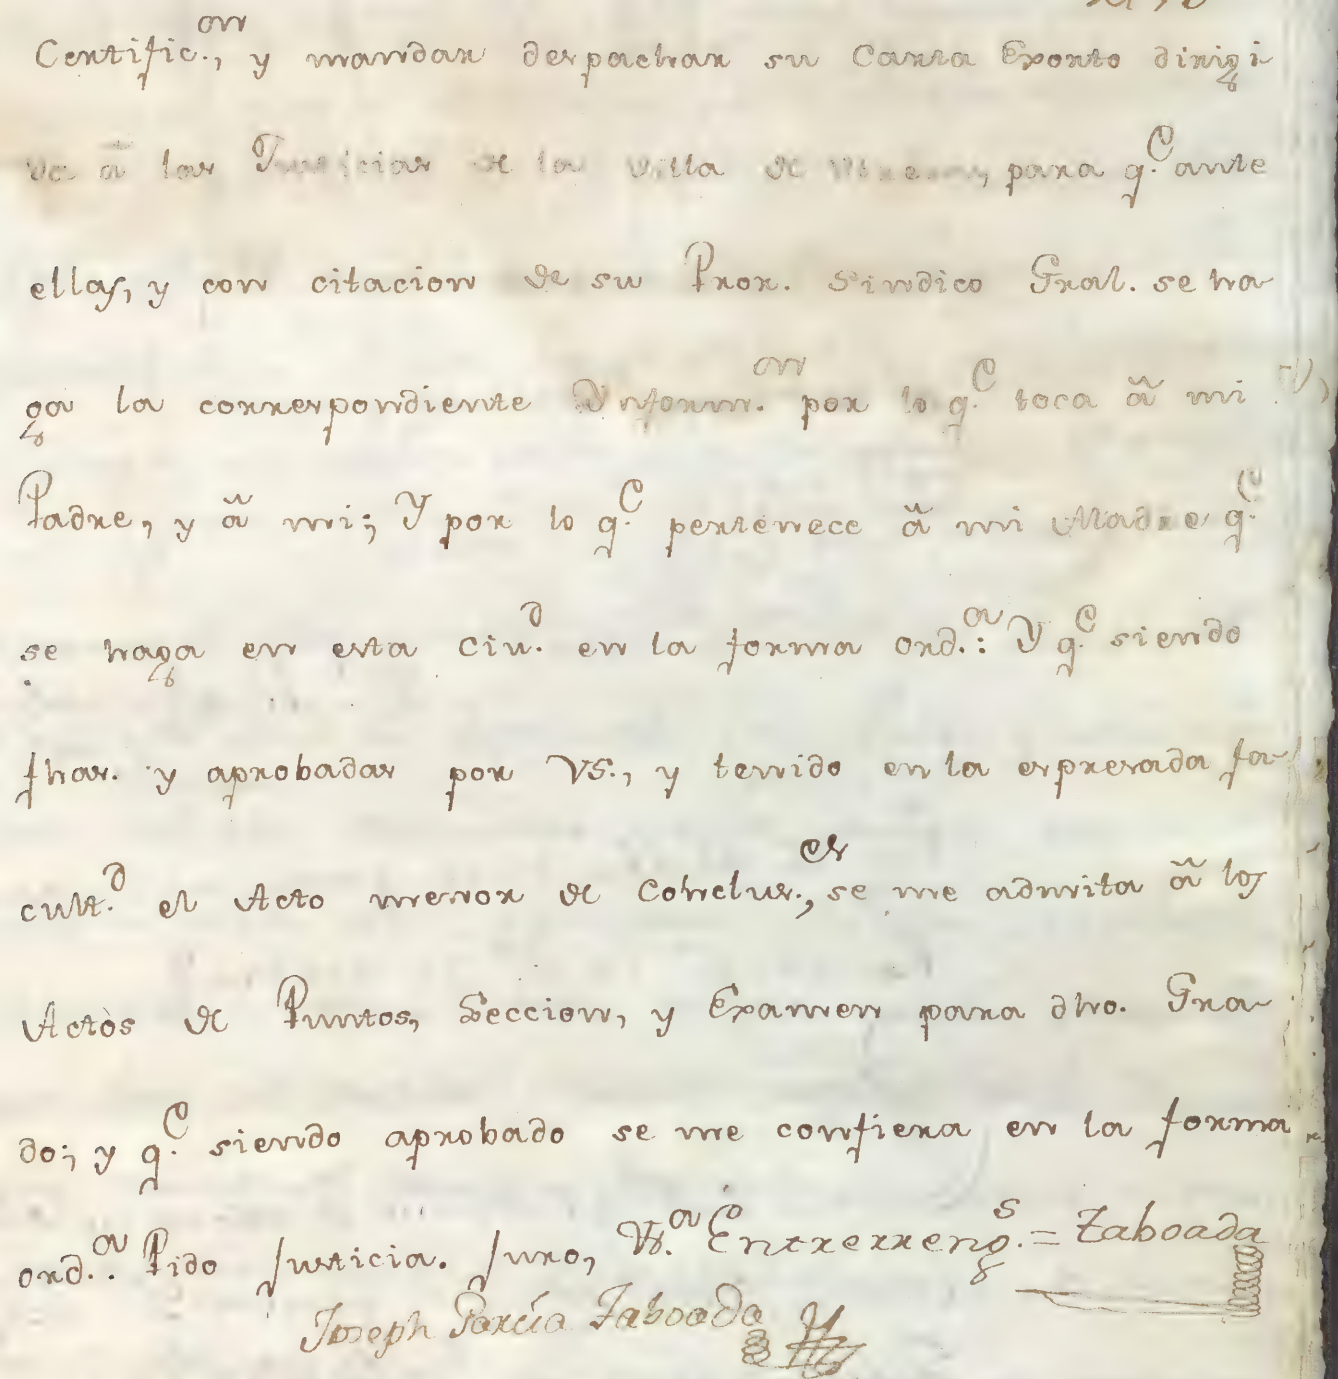 Certific.on, y mandar despachar su Carta Exorto dirigi
va â las Justicias de la Villa de para q.e ante
ellas, y con citacion de su Pror. Sindico Gral. se ha
ga la correspondiente Inform.on por lo q.e toca â mi
Padre, y â mi; Y por lo q.e pertenece â mi Madre q.e
se haga en esta Ciu.d en la forma ord.a: Y q.e siendo
fhas. y aprobadas por VS., y tenido en la expresada fa
cult.d el Acto menor de Conclus.es, se me admita â los
Actos de Puntos, Leccion, y Examen para dho. Gra
do; y q.e siendo aprobado se me confiera en la forma
ord.a. Pido Justicia. Juro, V.a Entrerreng.s = Taboada
Joseph García Taboada